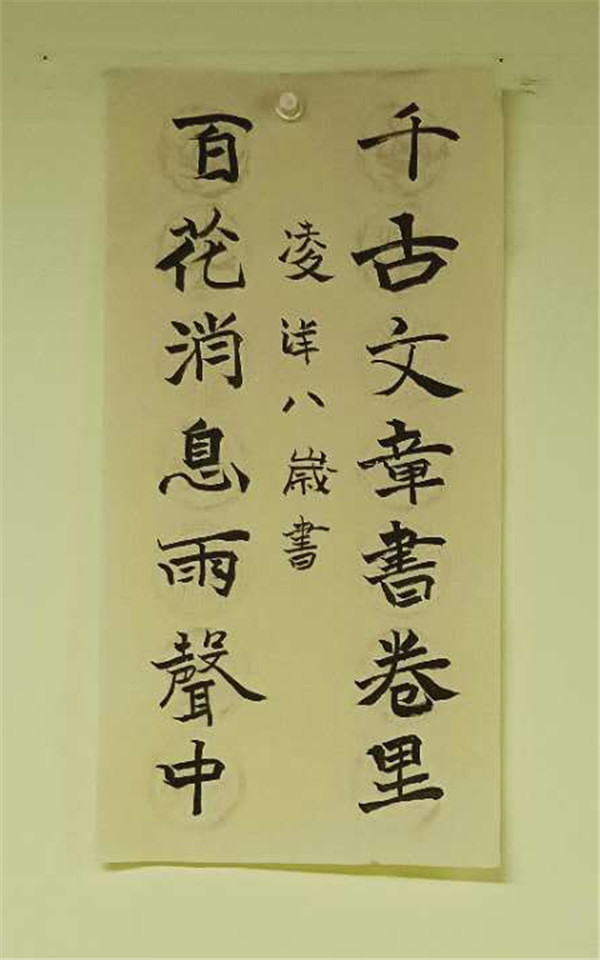 千古文章書卷里
百花消息雨聲中
凌洋八歲書